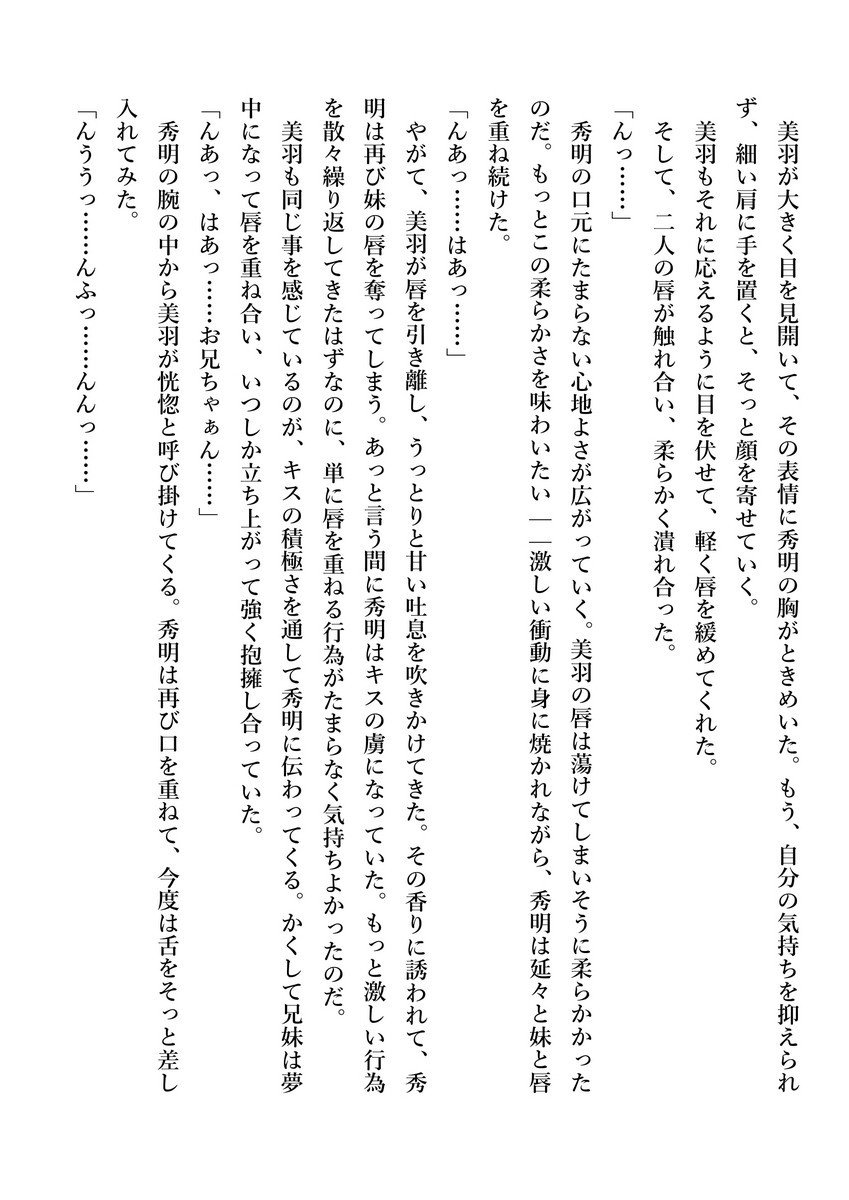 美羽が大きく目を見開いて、その表情に秀明の胸がときめいた。もう、自分の気持ちを抑えられ
ず、細い肩に手を置くと、そっと顔を寄せていく。
美羽もそれに応えるように目を伏せて、軽く唇を緩めてくれた。
そして、二人の唇が触れ合い、柔らかく潰れ合った。
「んっ……」
秀明の口元にたまらない心地よさが広がっていく。美羽の唇は蕩けてしまいそうに柔らかかった
のだ。もっとこの柔らかさを味わいたい――激しい衝動に身に焼かれながら、秀明は延々と妹と唇
を重ね続けた。
「んあっ……はあっ……」
やがて、美羽が唇を引き離し、うっとりと甘い吐息を吹きかけてきた。その香りに誘われて、秀
明は再び妹の唇を奪ってしまう。あっと言う間に秀明はキスの虜になっていた。もっと激しい行為
を散々繰り返してきたはずなのに、単に唇を重ねる行為がたまらなく気持ちよかったのだ。
美羽も同じ事を感じているのが、キスの積極さを通して秀明に伝わってくる。かくして兄妹は夢
中になって唇を重ね合い、いつしか立ち上がって強く抱擁し合っていた。
「んあっ、はあっ……お兄ちゃぁん……」
秀明の腕の中から美羽が恍惚と呼び掛けてくる。秀明は再び口を重ねて、今度は舌をそっと差し
入れてみた。
「んううっ……んふっ……んんっ……」